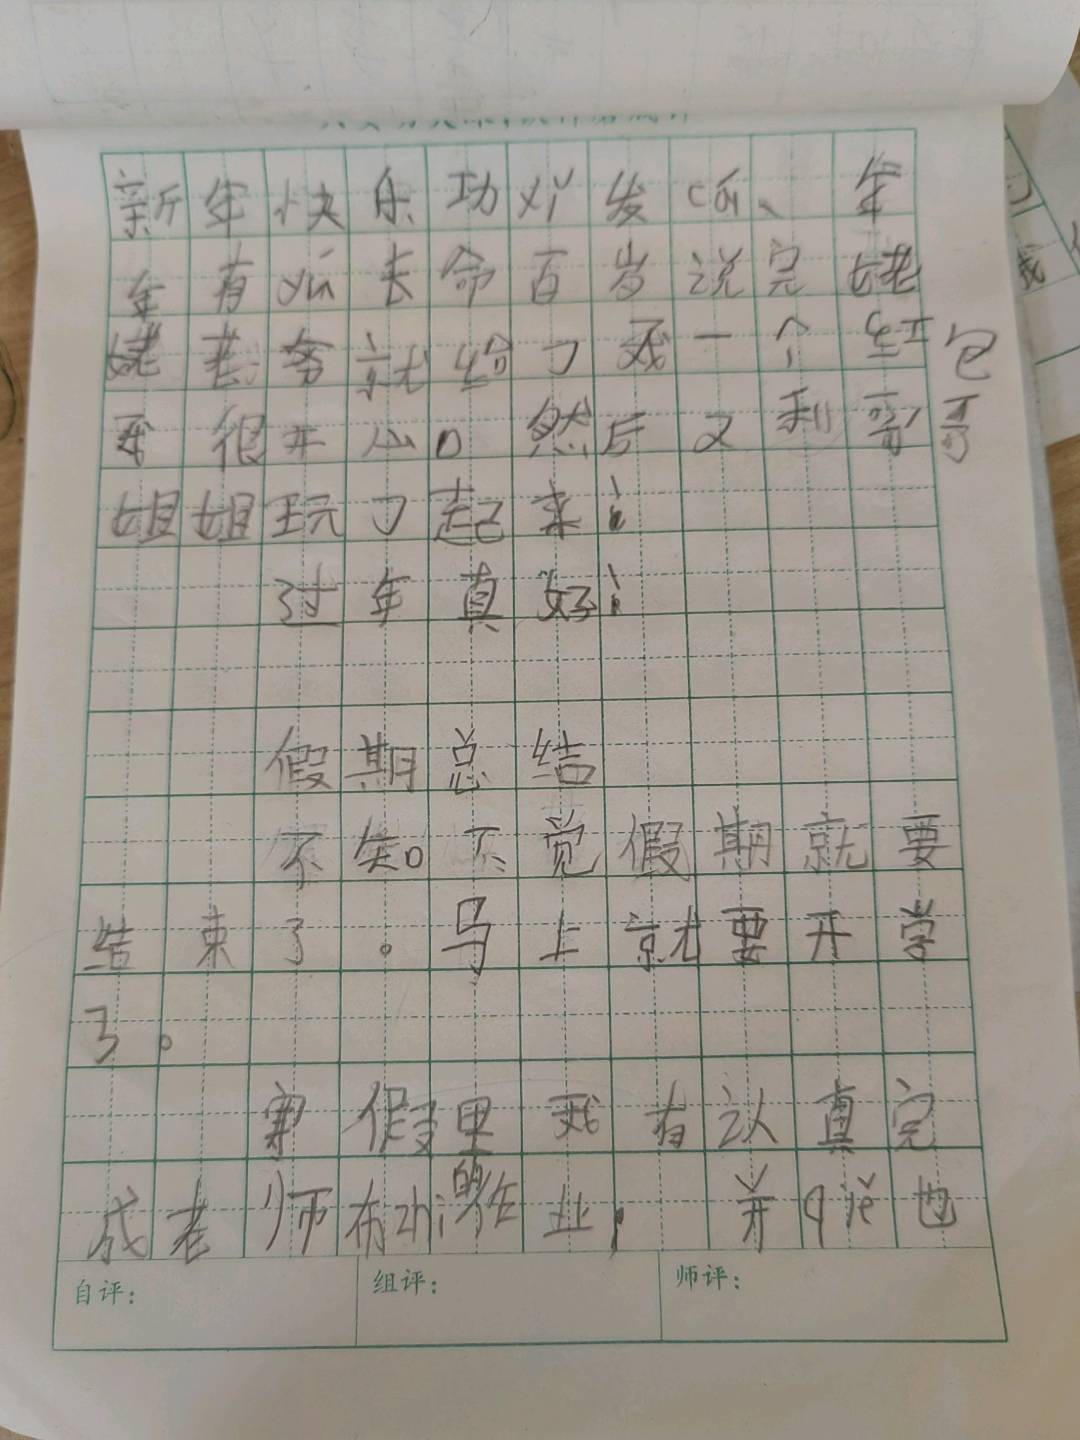 新年快乐功xǐ发cái、年
年有yú长命百岁说完姥
姥老爷就给了我一个红包
我很开心。然后又和哥哥
姐姐玩了起来！
过年真好！
假期总结
不知不觉假期就要
结束了。马上就要开学
了。
寒假里我有认真完
成老师布zhì的作业，并qiě也
自评：
组评：
师评：